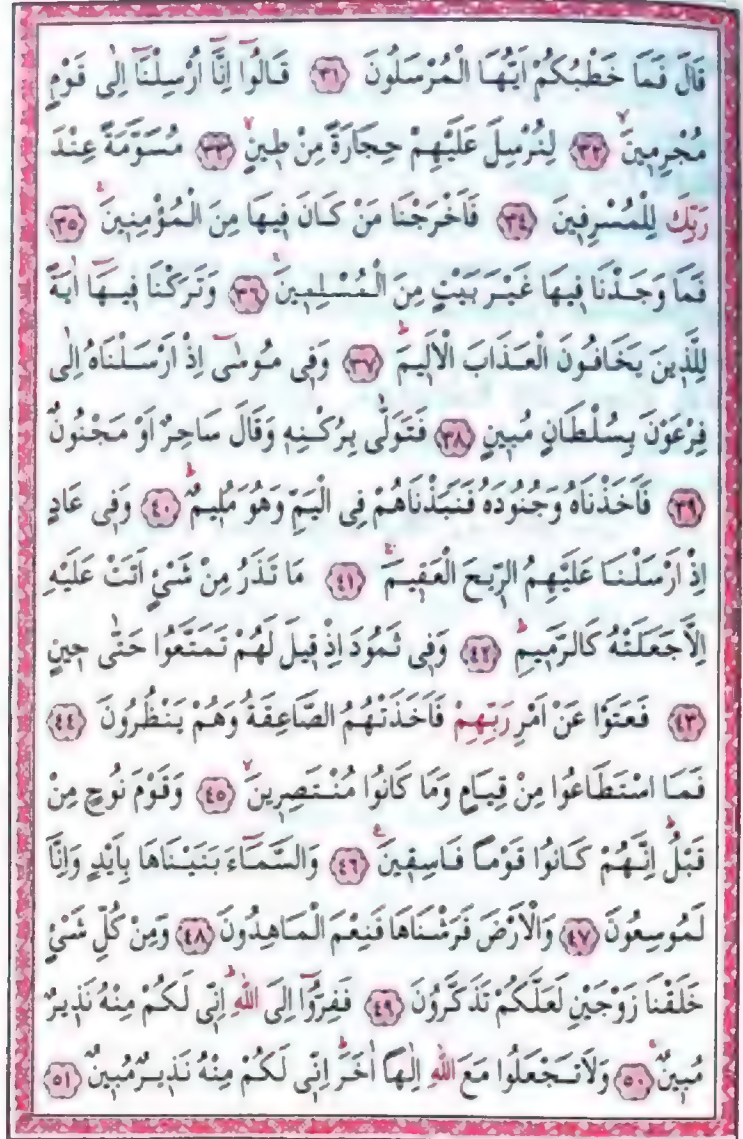 قَالَ فَمَا خَطْبُكُمْ اَيُّهَا الْمُرْسَلُونَ ﴿٣١﴾ قَالُٓوا اِنَّٓا اُرْسِلْنَٓا اِلٰى قَوْمٍ
مُجْرِم۪ينَۙ ﴿٣٢﴾ لِنُرْسِلَ عَلَيْهِمْ حِجَارَةً مِنْ ط۪ينٍۙ ﴿٣٣﴾ مُسَوَّمَةً عِنْدَ
رَبِّكَ لِلْمُسْرِف۪ينَ ﴿٣٤﴾ فَاَخْرَجْنَا مَنْ كَانَ ف۪يهَا مِنَ الْمُؤْمِن۪ينَۚ ﴿٣٥﴾
فَمَا وَجَدْنَا ف۪يهَا غَيْرَ بَيْتٍ مِنَ الْمُسْلِم۪ينَۚ ﴿٣٦﴾ وَتَرَكْنَا ف۪يهَٓا اٰيَةً
لِلَّذ۪ينَ يَخَافُونَ الْعَذَابَ الْاَل۪يمَۜ ﴿٣٧﴾ وَف۪ي مُوسٰٓى اِذْ اَرْسَلْنَاهُ اِلٰى
فِرْعَوْنَ بِسُلْطَانٍ مُب۪ينٍ ﴿٣٨﴾ فَتَوَلّٰى بِرُكْنِه۪ وَقَالَ سَاحِرٌ اَوْ مَجْنُونٌ
﴿٣٩﴾ فَاَخَذْنَاهُ وَجُنُودَهُ فَنَبَذْنَاهُمْ فِي الْيَمِّ وَهُوَ مُل۪يمٌۜ ﴿٤٠﴾ وَف۪ي عَادٍ
اِذْ اَرْسَلْنَا عَلَيْهِمُ الرّ۪يحَ الْعَق۪يمَۚ ﴿٤١﴾ مَا تَذَرُ مِنْ شَيْءٍ اَتَتْ عَلَيْهِ
اِلَّا جَعَلَتْهُ كَالرَّم۪يمِۜ ﴿٤٢﴾ وَف۪ي ثَمُودَ اِذْ ق۪يلَ لَهُمْ تَمَتَّعُوا حَتّٰى ح۪ينٍ
﴿٤٣﴾ فَعَتَوْا عَنْ اَمْرِ رَبِّهِمْ فَاَخَذَتْهُمُ الصَّاعِقَةُ وَهُمْ يَنْظُرُونَ ﴿٤٤﴾
فَمَا اسْتَطَاعُوا مِنْ قِيَامٍ وَمَا كَانُوا مُنْتَصِر۪ينَۙ ﴿٤٥﴾ وَقَوْمَ نُوحٍ مِنْ
قَبْلُۜ اِنَّهُمْ كَانُوا قَوْمًا فَاسِق۪ينَ۟ ﴿٤٦﴾ وَالسَّمَٓاءَ بَنَيْنَاهَا بِاَيْدٍ وَاِنَّا
لَمُوسِعُونَ ﴿٤٧﴾ وَالْاَرْضَ فَرَشْنَاهَا فَنِعْمَ الْمَاهِدُونَ ﴿٤٨﴾ وَمِنْ كُلِّ شَيْءٍ
خَلَقْنَا زَوْجَيْنِ لَعَلَّكُمْ تَذَكَّرُونَ ﴿٤٩﴾ فَفِرُّٓوا اِلَى اللّٰهِۜ اِنّ۪ي لَكُمْ مِنْهُ نَذ۪يرٌ
مُب۪ينٌۚ ﴿٥٠﴾ وَلَا تَجْعَلُوا مَعَ اللّٰهِ اِلٰهًا اٰخَرَۜ اِنّ۪ي لَكُمْ مِنْهُ نَذ۪يرٌ مُب۪ينٌۚ ﴿٥١﴾